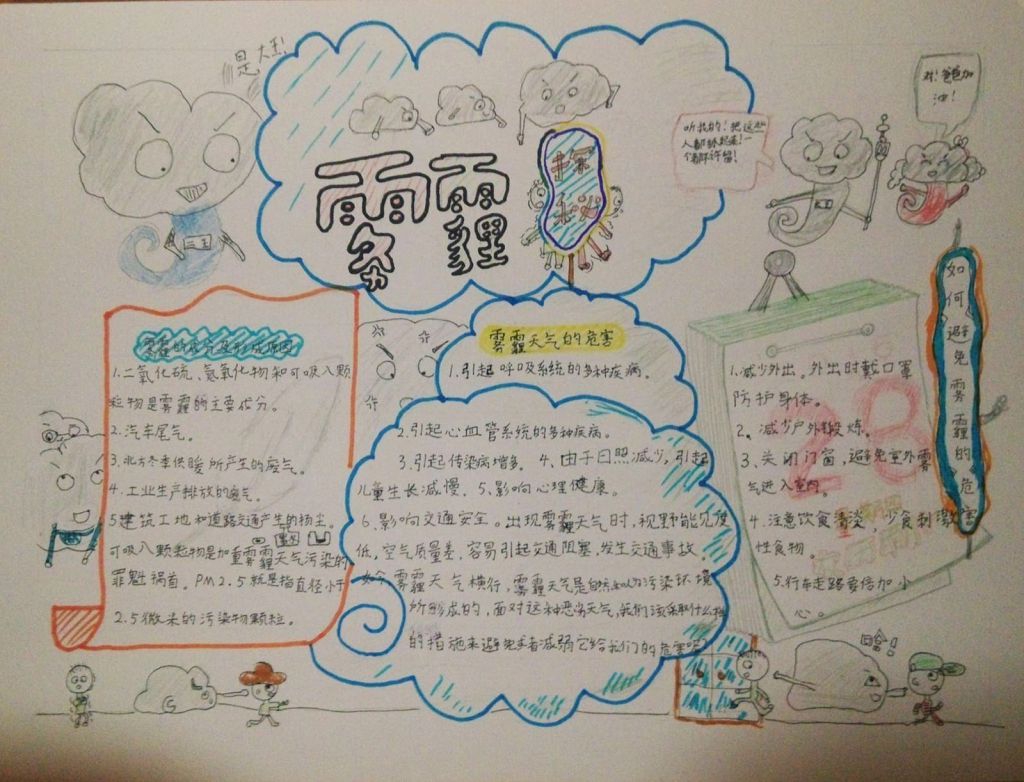 是,大王!
雾霾
探秘
听我的!把这些
人都抓起来!一
个都不许留!
对!爸爸加
油!
二王
雾霾的成分及形成原因
1.二氧化硫、氮氧化物和可吸入颗
粒物是雾霾的主要成分。
2.汽车尾气。
3.北方冬季供暖所产生的废气。
4.工业生产排放的废气。
5建筑工地和道路交通产生的扬尘。
可吸入颗粒物是加重雾霾天气污染的
罪魁祸首。PM2.5就是指直径小于
2.5微米的污染物颗粒。
雾霾天气的危害
1.引起呼吸系统的多种疾病。
2.引起心血管系统的多种疾病。
3.引起传染病增多。4、由于日照减少,引起
儿童生长减慢。5、影响心理健康。
6.影响交通安全。出现雾霾天气时,视野能见度
低,空气质量差,容易引起交通阻塞,发生交通事故。
如今雾霾天气横行,雾霾天气是自然和人为污染环境
所形成的,面对这种恶劣天气,我们该采取什么样
的措施来避免或者减弱它给我们的危害呢
如何避免雾霾的危害
1.减少外出。外出时戴口罩
防护身体。
2。减少户外锻炼。
3、关闭门窗,避免室外雾
气进入室内。
4.注意饮食清淡,少食刺激
性食物。
5.行车走路要倍加小
心。
28